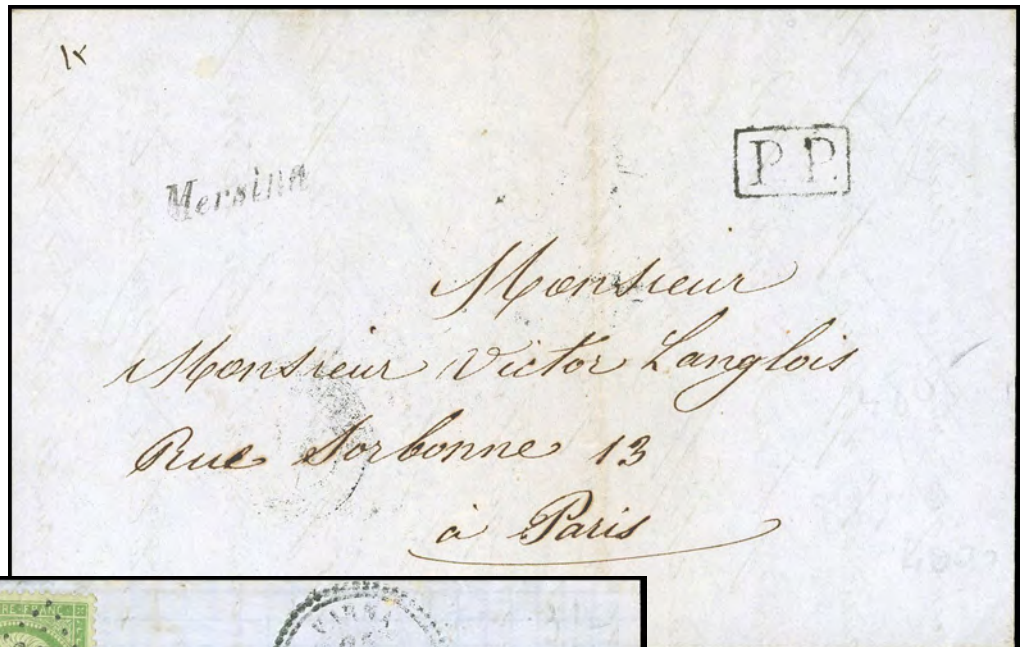 Mersina
P.P.
Monsieur
Monsieur Victor Langlois
Rue Sorbonne 13
à Paris
VARNA